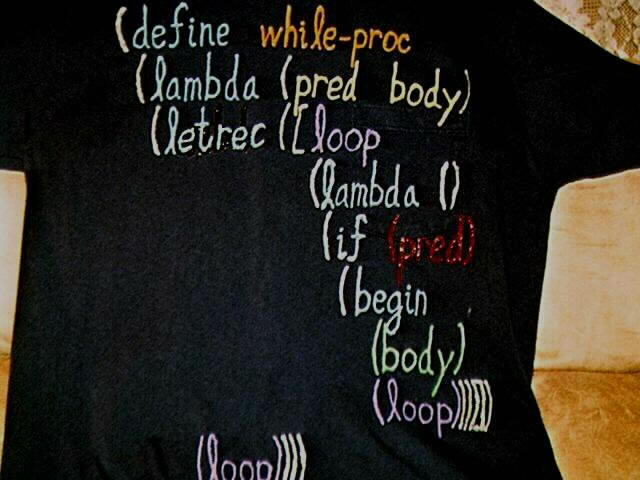 (define while-proc
(lambda (pred body)
(letrec ([loop
(lambda ()
(if (pred)
(begin
(body)
(loop))))])
(loop))))